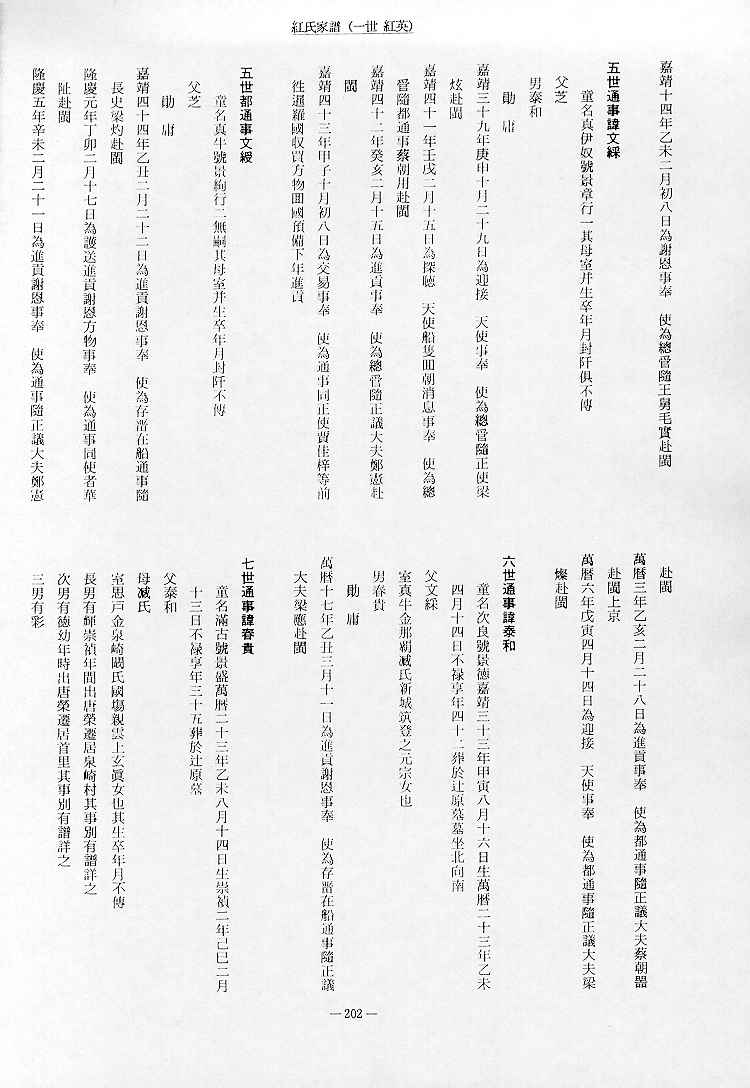 紅氏家譜（一世 紅英）
嘉靖十四年乙未二月初八日為謝恩事奉　使為總管隨王舅毛實赴閩
五世通事諱文綵
童名真伊奴號景章行一其母室并生卒年月封阡俱不傳
父芝
男泰和
勛　庸
嘉靖三十九年庚申十月二十九日為迎接　天使事奉　使為總管隨正使梁
炫赴閩
嘉靖四十一年壬戌二月十五日為探聴　天使船隻回朝消息事奉　使為總
管隨都通事蔡朝用赴閩
嘉靖四十二年癸亥二月十五日為進貢事奉　使為總管隨正議大夫鄭憲赴
閩
嘉靖四十三年甲子十月初八日為交易事奉　使為通事同正使賈佳梓等前
徃暹羅國收買方物囬國預備下年進貢
五世都通事文綬
童名真牛號景絢行二無嗣其母室并生卒年月封阡不傳
父芝
勛　庸
嘉靖四十四年乙丑二月二十二日為進貢謝恩事奉　使為存畱在船通事隨
長史梁灼赴閩
隆慶元年丁卯二月十七日為護送進貢謝恩方物事奉　使為通事同使者華
阯赴閩
隆慶五年辛未二月二十一日為進貢謝恩事奉　使為通事隨正議大夫鄭憲
赴閩
萬曆三年乙亥二月二十八日為進貢事奉　使為都通事隨正議大夫蔡朝器
赴閩上京
萬曆六年戊寅四月十四日為迎接　天使事奉　使為都通事隨正議大夫梁
燦赴閩
六世通事諱泰和
童名次良號景德嘉靖三十三年甲寅八月十六日生萬曆二十三年乙未
四月十四日不禄享年四十二葬於辻原墓墓坐北向南
父文綵
室真牛金那覇臧氏新城筑登之元宗女也
男春貴
勛　庸
萬曆十七年乙丑三月十一日為進貢謝恩事奉　使為存畱在船通事隨正議
大夫梁應赴閩
七世通事諱春貴
童名滿古號景盛萬曆二十三年乙未八月十四日生崇禎二年己巳二月
十三日不禄享年三十五葬於辻原墓
父泰和
母臧氏
室思戸金泉崎閎氏國塲親雲上玄眞女也其生卒年月不傳
長男有輝崇禎年間出唐榮遷居泉崎村其事別有譜詳之
次男有德幼年時出唐榮遷居首里其事別有譜詳之
三男有彩
— 202 —